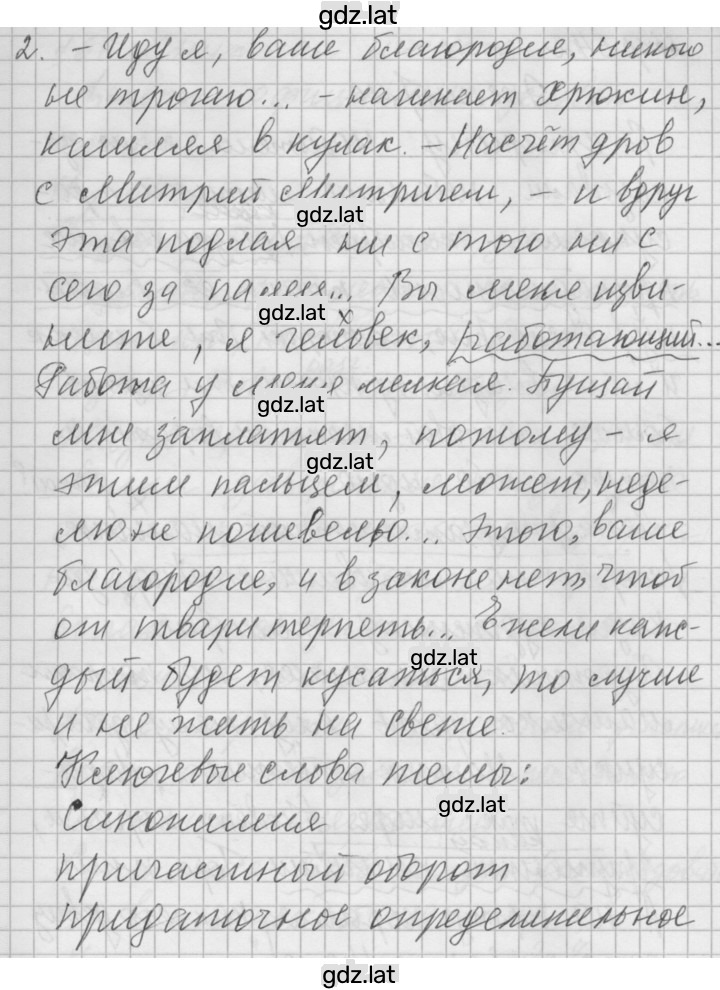 gdz.lat
2. – Иду я, ваше благородие, никого
не трогаю... – начинает Хрюкин,
кашляя в кулак. – Насчёт дров
с Митрий Митричем, – и вдруг
gdz.lat
эта подлая ни с того ни с
сего за палец... Вы меня изви-
gdz.lat
ните, я человек, работающий...
Работа у меня мелкая. Пущай
gdz.lat
мне заплатят, потому – я
gdz.lat
этим пальцем, может, неде-
лю не пошевелю... Этого, ваше
благородие, и в законе нет, чтоб
от твари терпеть... Ежели каж-
gdz.lat
дый будет кусаться, то лучше
и не жить на свете.
Ключевые слова темы:
gdz.lat
Синонимия
причастный оборот
придаточное определительное
gdz.lat